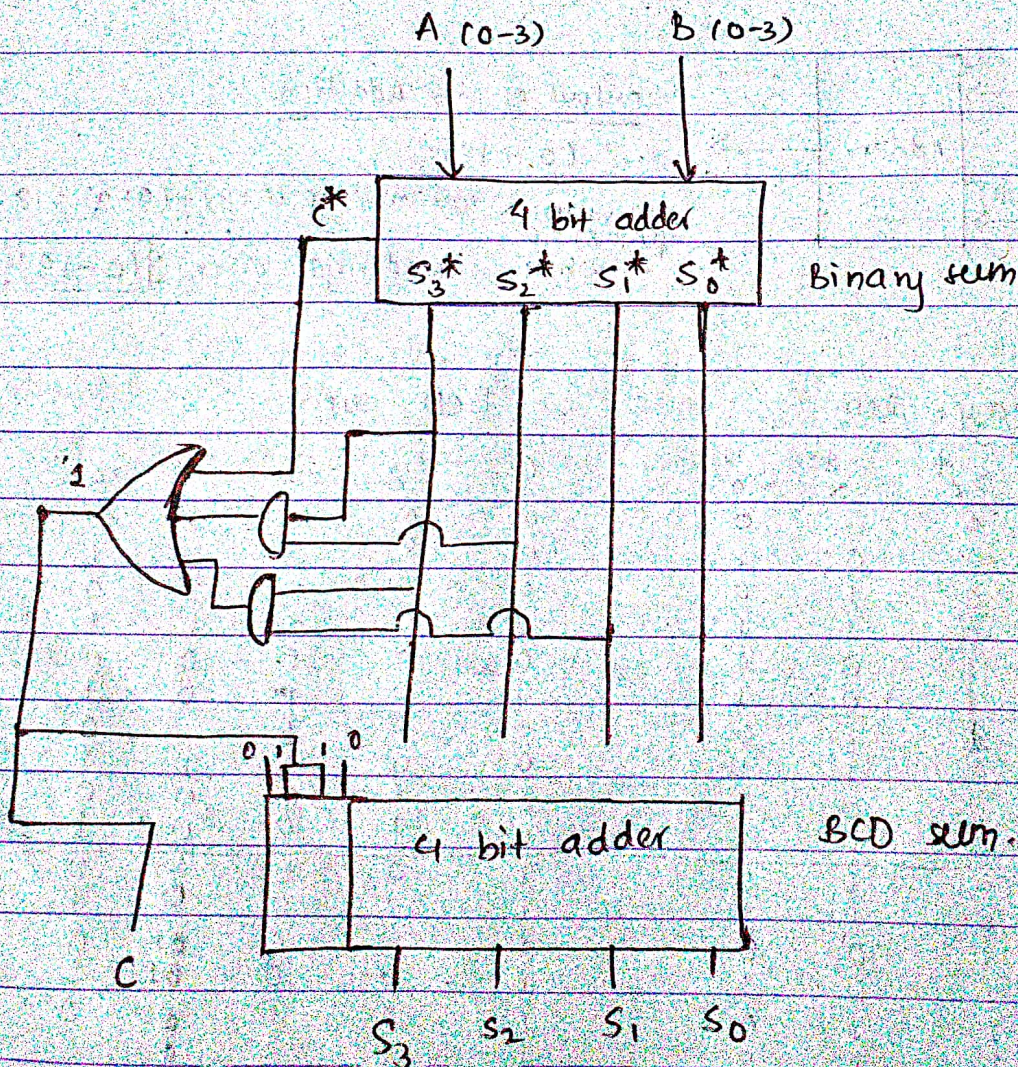 A (0-3) B (0-3)
C*
4 bit adder
S3* S2* S1* S0* Binary sum
1
0 1 1 0
4 bit adder BCD sum.
C
S3 S2 S1 S0